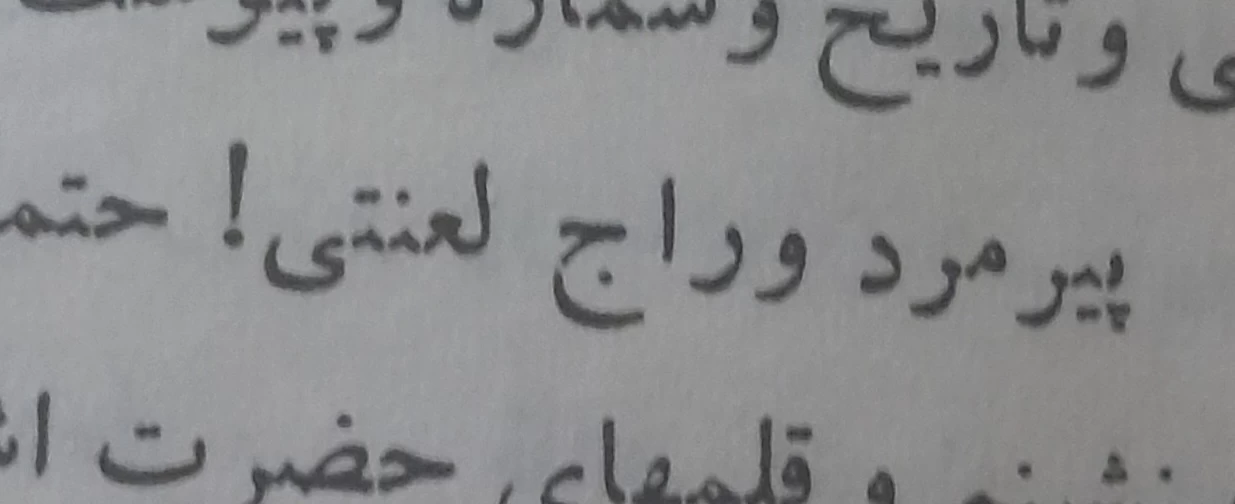 ی و تاریخ و شماره و پیوست
پیرمرد وراج لعنتی! حتم
و قلمهای حضرت